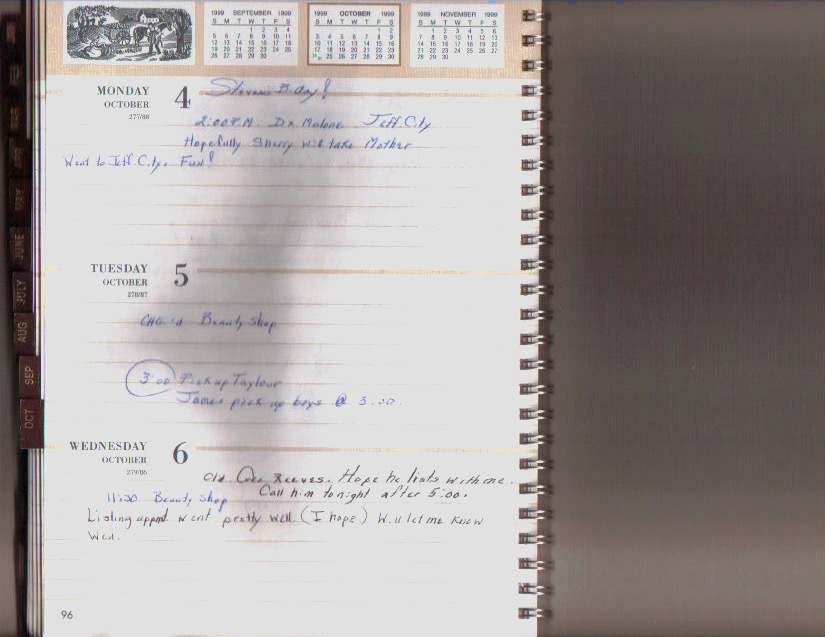 1999 SEPTEMBER 1999
S M T W T F S
1 2 3 4
5 6 7 8 9 10 11
12 13 14 15 16 17 18
19 20 21 22 23 24 25
26 27 28 29 30
1999 OCTOBER 1999
S M T W T F S
1 2
3 4 5 6 7 8 9
10 11 12 13 14 15 16
17 18 19 20 21 22 23
24 25 26 27 28 29 30
31
1999 NOVEMBER 1999
S M T W T F S
1 2 3 4 5 6
7 8 9 10 11 12 13
14 15 16 17 18 19 20
21 22 23 24 25 26 27
28 29 30
MONDAY 4 Steven's B-day!
OCTOBER
277/88
2:00 P.M. Dr. Malone Jeff. City
Hopefully Sherry will take Mother
Went to Jeff. City. Fun!
TUESDAY 5
OCTOBER
278/87
Beauty Shop
3:00 Pick up Taylour
James pick up boys @ 3:00
WEDNESDAY 6
OCTOBER
279/86
Reeves. Hope he lists with me.
Call him tonight after 5:00.
11:30 Beauty Shop
Listing appmt went pretty well (I hope) Will let me know
Wed.
MAY
JUNE
JULY
AUG
SEP
OCT
96